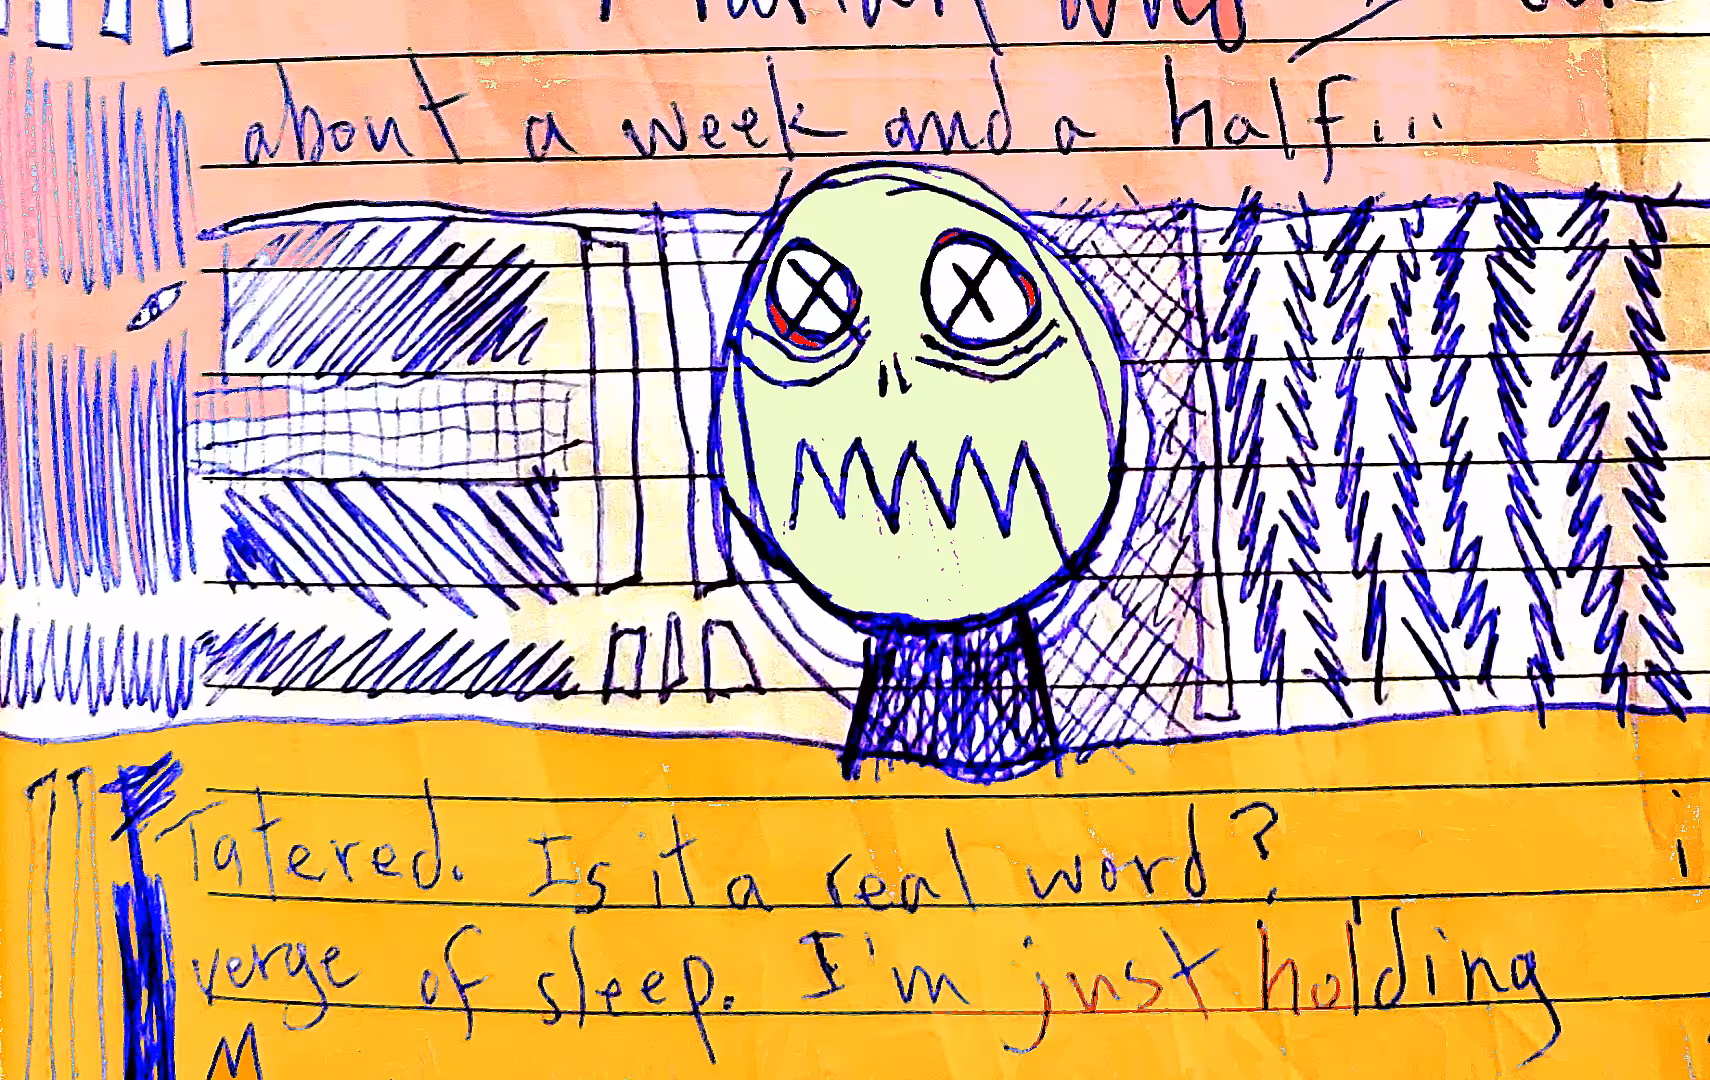 about a week and a half...
Tatered. Is it a real word? i
verge of sleep. I'm just holding
M